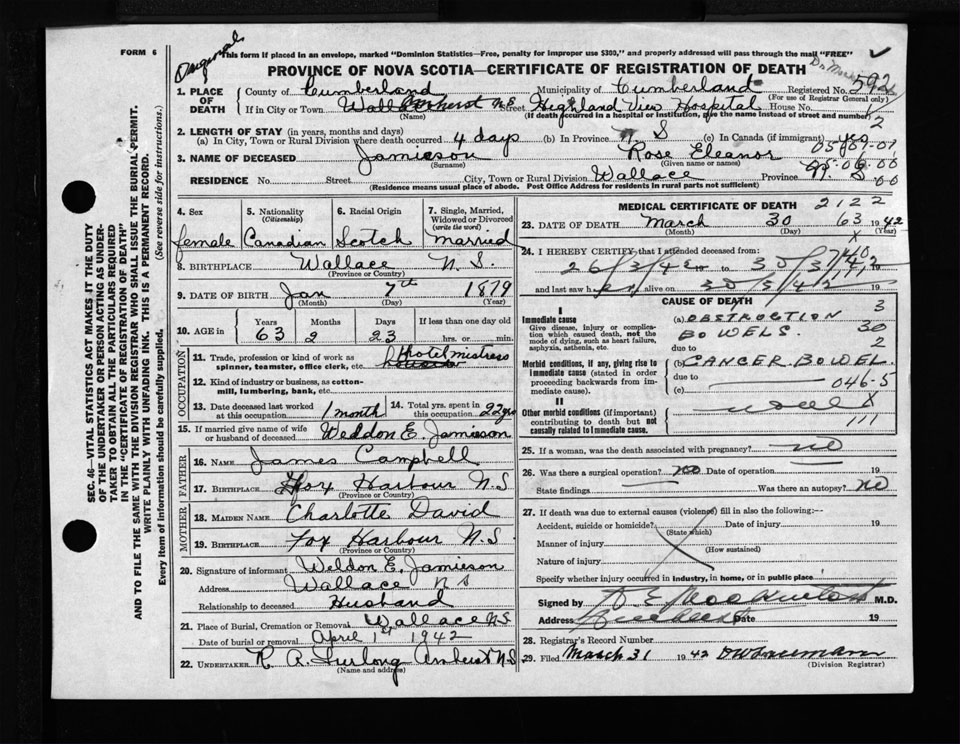 FORM 6
Original
This form if placed in an envelope, marked "Dominion Statistics—Free, penalty for improper use $300," and properly addressed will pass through the mail "FREE"
PROVINCE OF NOVA SCOTIA—CERTIFICATE OF REGISTRATION OF DEATH
1. PLACE OF DEATH
County of Cumberland Municipality of Cumberland Registered No. 592
(For use of Registrar General only)
If in City or Town Amherst N.S. Street Highland View Hospital House No.
(Name) (If death occurred in a hospital or institution, give the name instead of street and number)
2. LENGTH OF STAY (in years, months and days)
(a) In City, Town or Rural Division where death occurred 4 days (b) In Province N S (c) In Canada (if immigrant) yes
3. NAME OF DECEASED Jamieson Rose Eleanor
(Surname) (Given name or names)
RESIDENCE No. Street City, Town or Rural Division Wallace Province N. S.
(Residence means usual place of abode. Post Office Address for residents in rural parts not sufficient)
4. Sex female
5. Nationality (Citizenship) Canadian
6. Racial Origin Scotch
7. Single, Married, Widowed or Divorced (write the word) married
8. BIRTHPLACE Wallace N. S.
(Province or Country)
9. DATE OF BIRTH Jan 7th 1879
(Month) (Day) (Year)
10. AGE in Years Months Days If less than one day
63 2 23 hrs. or min.
OCCUPATION
11. Trade, profession or kind of work as spinner, teamster, office clerk, etc. Hotel mistress
12. Kind of industry or business, as cotton-mill, lumbering, bank, etc.
13. Date deceased last worked at this occupation 1 month
14. Total yrs. spent in this occupation 22 yrs
15. If married give name of wife or husband of deceased Weldon E. Jamieson
FATHER
16. NAME James Campbell
17. BIRTHPLACE Fox Harbour N.S
(Province or Country)
MOTHER
18. MAIDEN NAME Charlotte David
19. BIRTHPLACE Fox Harbour N.S.
(Province or Country)
20. Signature of informant Weldon E. Jamieson
Address Wallace N S
Relationship to deceased Husband
21. Place of Burial, Cremation or Removal Wallace N S
Date of burial or removal April 1st 1942
22. UNDERTAKER R. A. Furlong Amherst N.S
(Name and address)
MEDICAL CERTIFICATE OF DEATH
2122
23. DATE OF DEATH March 30 63 1942
(Month) (Day) (Year)
24. I HEREBY CERTIFY that I attended deceased from:
26/3/42 to 30/3/42
and last saw her alive on 30/3/42 19
CAUSE OF DEATH
I
Immediate cause
Give disease, injury or complication which caused death, not the mode of dying, such as heart failure, asphyxia, asthenia, etc.
(a) OBSTRUCTION
BOWELS
due to
Morbid conditions, if any, giving rise to immediate cause (stated in order proceeding backwards from immediate cause).
(b) CANCER BOWEL.
due to
046-5
(c)
II
Other morbid conditions (if important) contributing to death but not causally related to immediate cause.
111
25. If a woman, was the death associated with pregnancy? no
26. Was there a surgical operation? no Date of operation 19
State findings Was there an autopsy? no
27. If death was due to external causes (violence) fill in also the following:—
Accident, suicide or homicide? Date of injury 19
(State which)
Manner of injury
(How sustained)
Nature of injury
Specify whether injury occurred in industry, in home, or in public place
Signed by M.D.
Address Date 19
28. Registrar's Record Number
29. Filed March 31 1942
(Division Registrar)
SEC. 46—VITAL STATISTICS ACT MAKES IT THE DUTY OF THE UNDERTAKER OR PERSON ACTING AS UNDERTAKER TO OBTAIN ALL THE PARTICULARS REQUIRED IN THE "CERTIFICATE OF REGISTRATION OF DEATH" AND TO FILE THE SAME WITH THE DIVISION REGISTRAR WHO SHALL ISSUE THE BURIAL PERMIT.
WRITE PLAINLY WITH UNFADING INK. THIS IS A PERMANENT RECORD.
Every item of information should be carefully supplied. (See reverse side for instructions.)